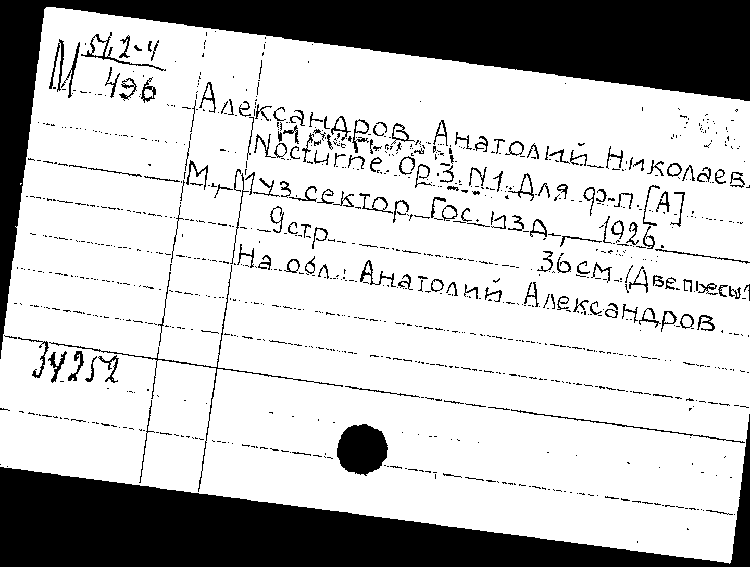 М 51,2-4
496
Александров, Анатолий Николаев.
Ноктюрн
Nocturne. Op.3. N1. Для ф-п. [А].
М., Муз. сектор, Гос. изд., 1926.
9стр. 36см. (Две пьесы
На обл.: Анатолий Александров.
34252